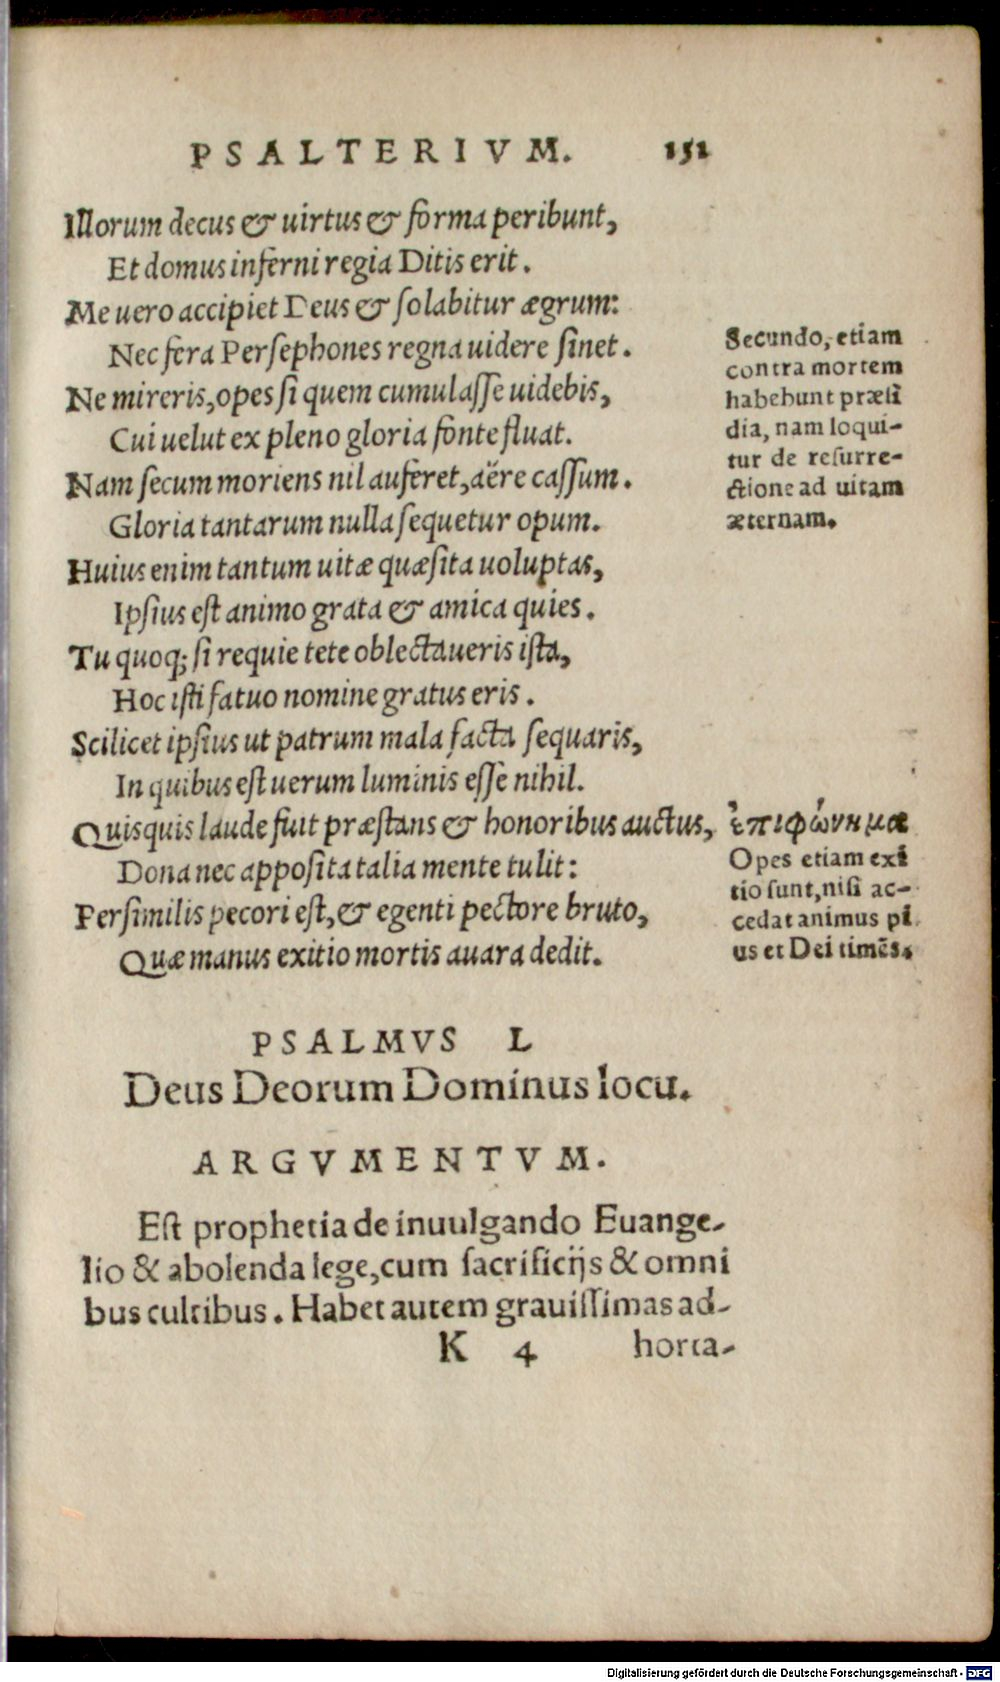 PSALTERIVM. 151
Illorum decus & uirtus & forma peribunt,
Et domus inferni regia Ditis erit.
Me uero accipiet Deus & solabitur ægrum:
Nec fera Persephones regna uidere sinet.
Ne mireris, opes si quem cumulasse uidebis,
Cui uelut ex pleno gloria fonte fluat.
Nam secum moriens nil auferet, aëre cassum.
Gloria tantarum nulla sequetur opum.
Huius enim tantum uitæ quæsita uoluptas,
Ipsius est animo grata & amica quies.
Tu quoq; si requie tete oblectaueris ista,
Hoc isti fatuo nomine gratus eris.
Scilicet ipsius ut patrum mala facta sequaris,
In quibus est uerum luminis esse nihil.
Quisquis laude fuit præstans & honoribus auctus,
Dona nec apposita talia mente tulit:
Persimilis pecori est, & egenti pectore bruto,
Quæ manus exitio mortis auara dedit.
Secundo, etiam
contra mortem
habebunt præsi
dia, nam loqui-
tur de resurre-
ctione ad uitam
æternam.
ἐπιφώνημα
Opes etiam exi
tio sunt, nisi ac-
cedat animus pi
us et Dei timēs.
PSALMVS L
Deus Deorum Dominus locu.
ARGVMENTVM.
Est prophetia de inuulgando Euange-
lio & abolenda lege, cum sacrificijs & omni
bus cultibus. Habet autem grauissimas ad-
K 4 horta-
Digitalisierung gefördert durch die Deutsche Forschungsgemeinschaft - DFG